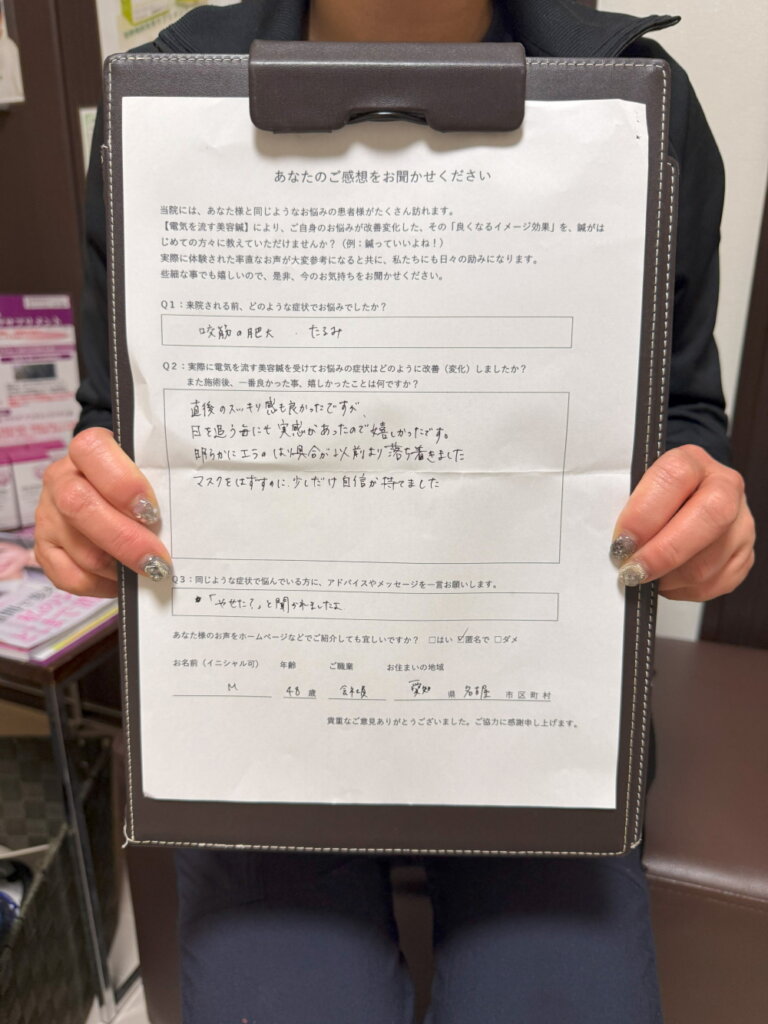 あなたのご感想をお聞かせください
当院には、あなた様と同じようなお悩みの患者様がたくさん訪れます。
【電気を流す美容鍼】により、ご自身のお悩みが改善変化した、その「良くなるイメージ効果」を、鍼がは
じめての方々に教えていただけませんか？（例：鍼っていいよね！）
実際に体験された率直なお声が大変参考になると共に、私たちにも日々の励みになります。
些細な事でも嬉しいので、是非、今のお気持ちをお聞かせください。
Q1：来院される前、どのような症状でお悩みでしたか？
咬筋の肥大 . たるみ
Q2：実際に電気を流す美容鍼を受けてお悩みの症状はどのように改善（変化）しましたか？
また施術後、一番良かった事、嬉しかったことは何ですか？
直後のスッキリ感も良かったですが、
日を追う毎にそ 実感があったので嬉しかったです。
明らかにエラの はり具合が以前より 落ち着きました
マスクをはずすのに、少しだけ自信が持てました
Q3：同じような症状で悩んでいる方に、アドバイスやメッセージを一言お願いします。
「やせた？」と聞かれましたよ
あなた様のお声をホームページなどでご紹介しても宜しいですか？ □はい ☑匿名で □ダメ
お名前（イニシャル可） 年齢 ご職業 お住まいの地域
M 48 歳 会社員 愛知 県 名古屋 市区町村
貴重なご意見ありがとうございました。ご協力に感謝申し上げます。